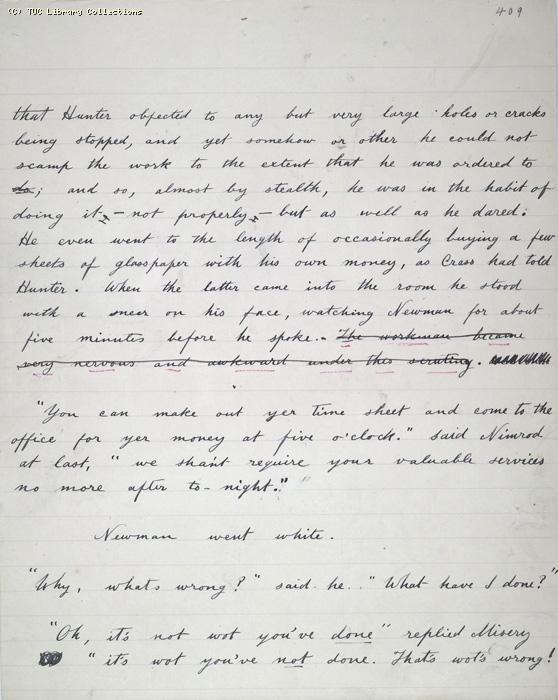 (C) TUC Library Collections
409
that Hunter objected to any but very large holes or cracks
being stopped, and yet somehow or other he could not
scamp the work to the extent that he was ordered to
do; and so, almost by stealth, he was in the habit of
doing it - not properly - but as well as he dared.
He even went to the length of occasionally buying a few
sheets of glasspaper with his own money, as Crass had told
Hunter. When the latter came into the room he stood
with a sneer on his face, watching Newman for about
five minutes before he spoke. The workman became
very nervous and awkward under this scrutiny.
"You can make out yer time sheet and come to the
office for yer money at five o'clock." said Nimrod
at last, "we shan't require your valuable services
no more after to-night."
Newman went white.
"Why, whats wrong?" said he. "What have I done?"
"Oh, it's not wot you've done" replied Misery
"it's wot you've not done. Thats wot's wrong!